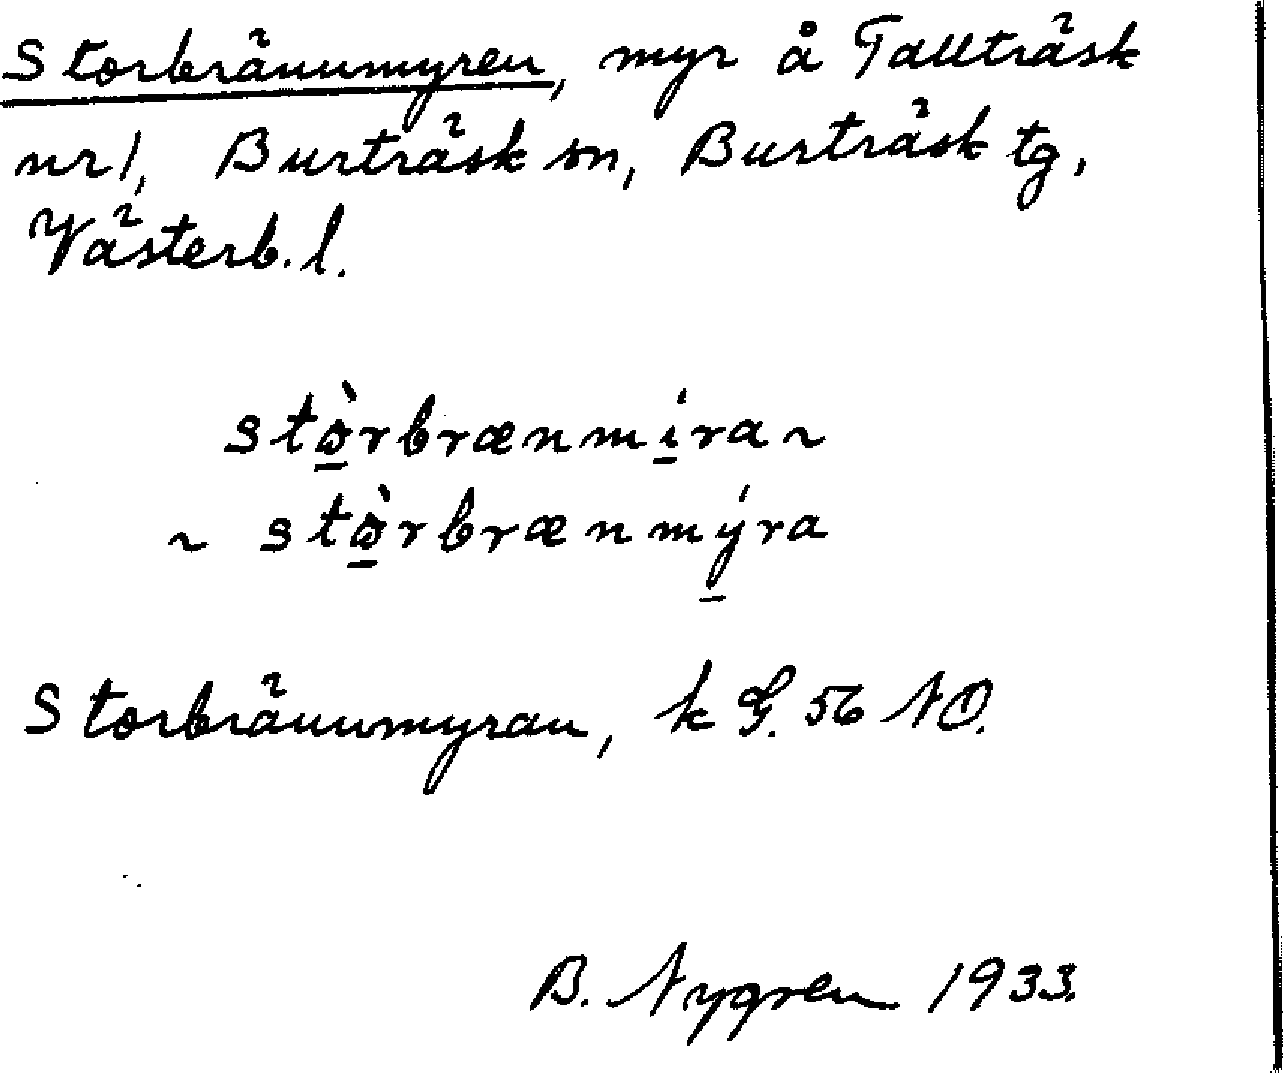 Storbrännmyren, myr å Tallträsk
nr 1, Burträsk sn, Burträsk tg,
Västerb. l.
stò̱rbrænmí̱ra ~
~ stò̱rbrænmý̱ra
Storbrännmyran, k G. 56 NO.
B. Nygren 1933.